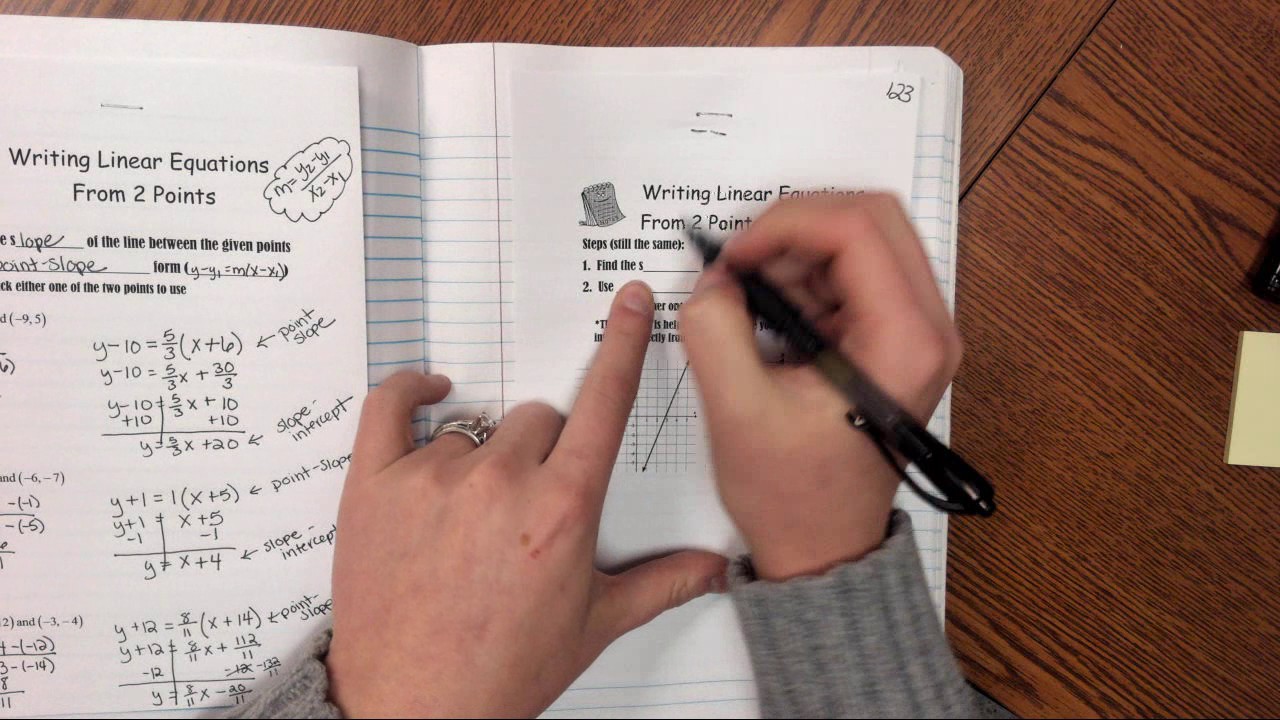 Writing Linear Equations
From 2 Points
m = y2-y1
x2-x1
slope of the line between the given points
point-slope form (y-y1=m(x-x1))
either one of the two points to use
(-9, 5)
y-10 = 5/3(x+6) ← point slope
y-10 = 5/3x + 30/3
y-10 = 5/3x + 10
+10 +10
y = 5/3x + 20 ← slope-intercept
and (-6, -7)
-(-1)
-(-5)
y+1 = 1(x+5) ← point-slope
y+1 = x+5
-1 -1
y = x+4 ← slope-intercept
and (-3, -4)
-(-12)
-(-14)
8
11
y+12 = 8/11(x+14) ← point-slope
y+12 = 8/11x + 112/11
-12 -12 -132/11
y = 8/11x - 20/11
123
Writing Linear Equations
From 2 Point
Steps (still the same):
1. Find the s
2. Use